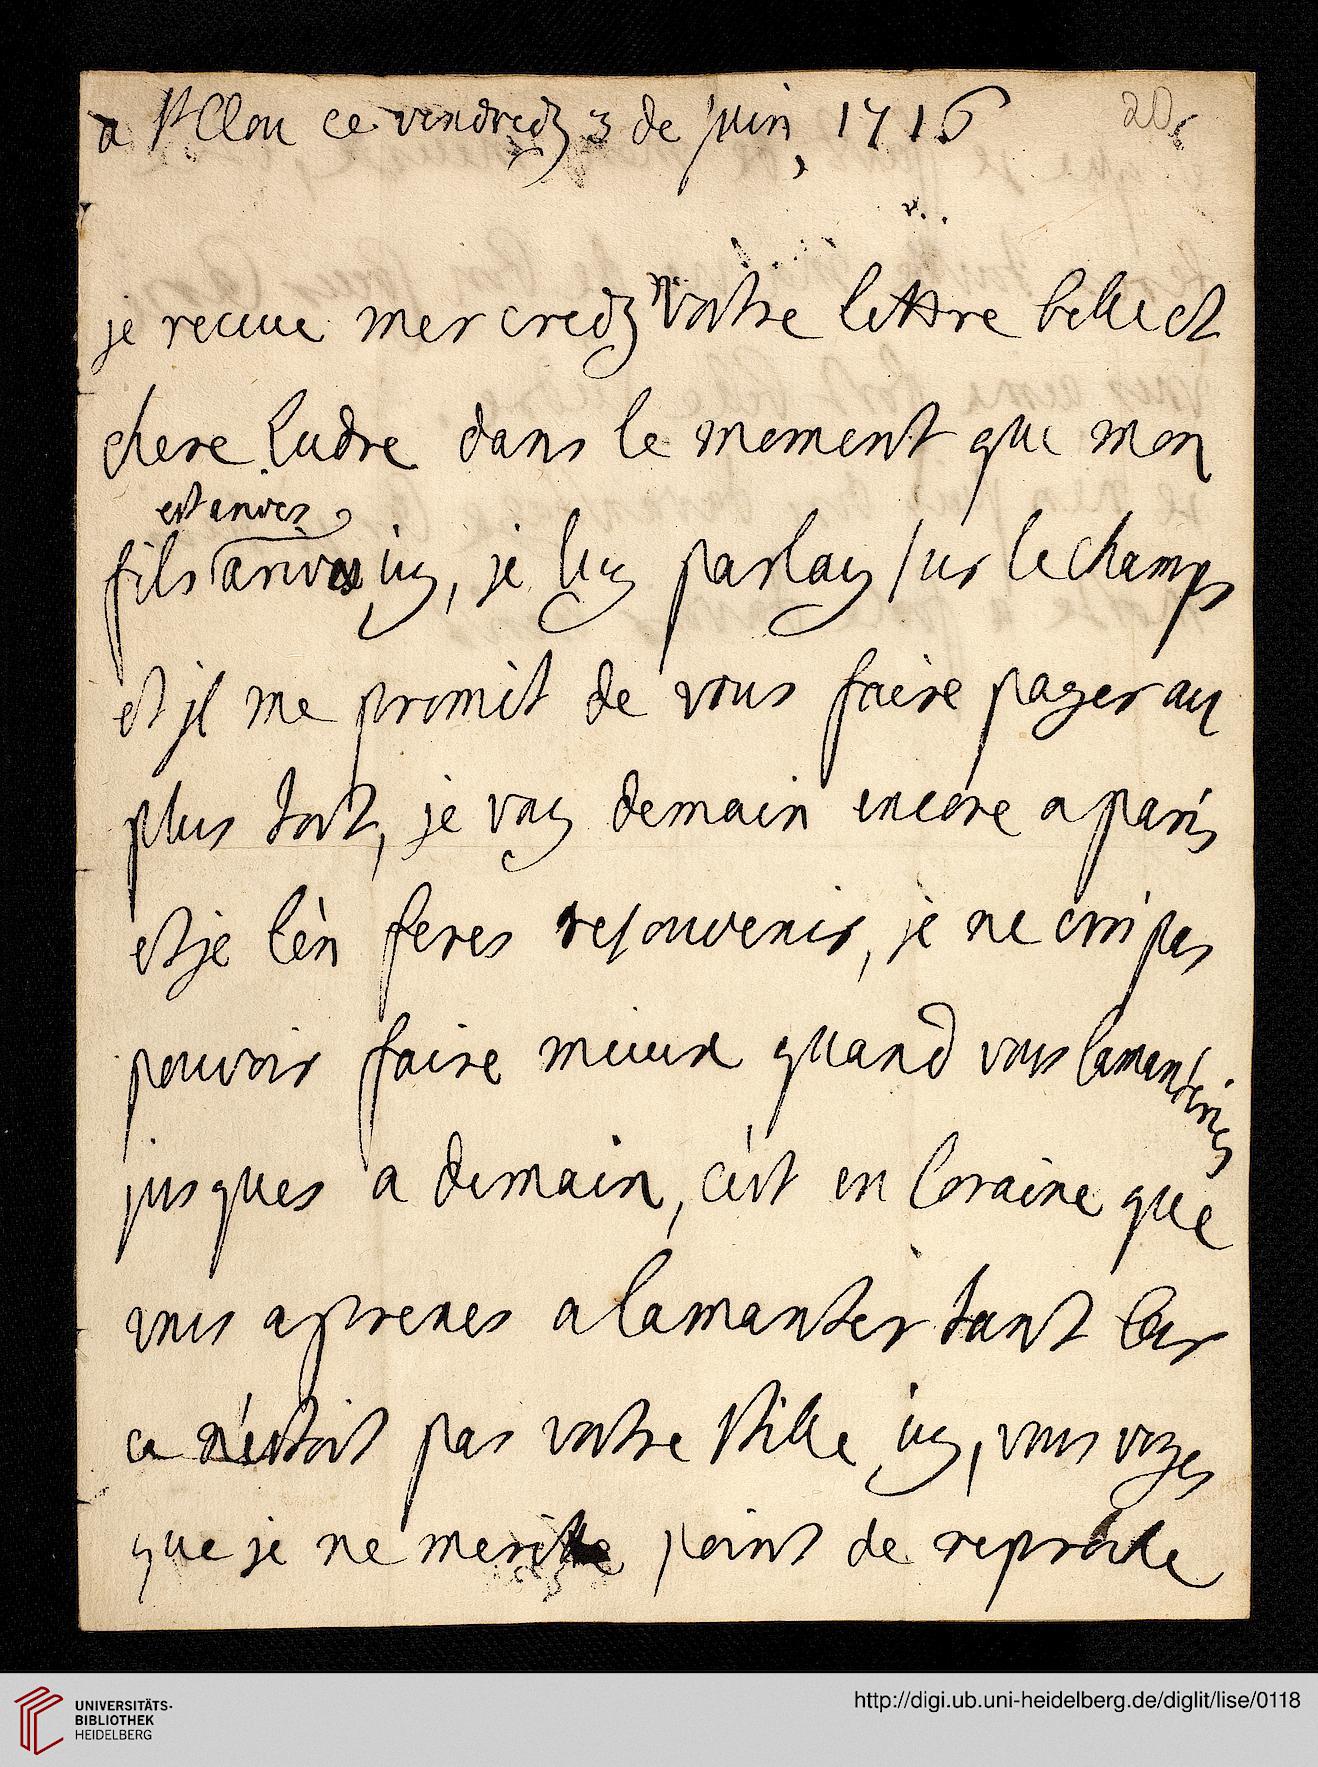 a St Clou ce vendredy 3 de juin, 1716
20
je receue mercredy votre lettre belle et
chere Ludre dans le moment que mon
est arives
fils arives icy, je luy parlay sur le champs
et jl me promit de vous faire payer au
plus tost, je vay demain encore a paris
et je l'en feres resouvenir, je ne croi pas
pouvoir faire mieux quand vous lamanteries
jusques a demain, c'est en Loraine que
vous aprenes a lamanter tant car
ce n'estoit pas vostre stille icy, vous voyes
que je ne meritte point de reproche
UNIVERSITÄTS-
BIBLIOTHEK
HEIDELBERG
http://digi.ub.uni-heidelberg.de/diglit/lise/0118